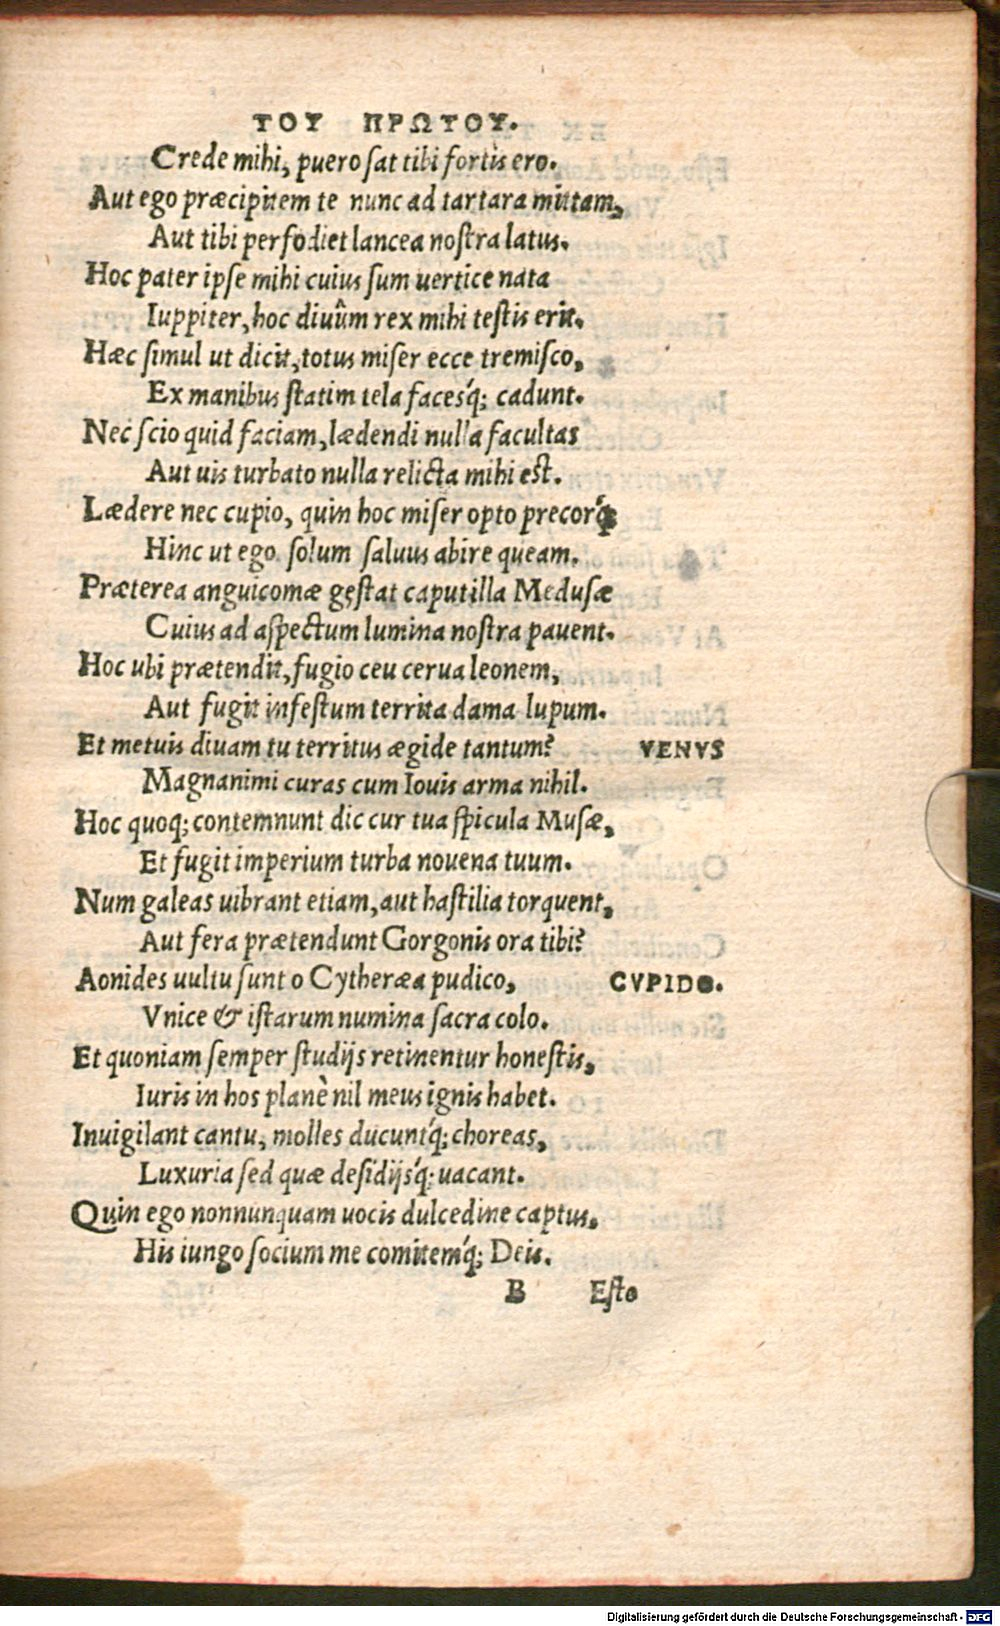 ΤΟΥ ΠΡΩΤΟΥ.
Crede mihi, puero sat tibi fortis ero.
Aut ego præcipitem te nunc ad tartara mittam,
Aut tibi perfodiet lancea nostra latus.
Hoc pater ipse mihi cuius sum uertice nata
Iuppiter, hoc diuûm rex mihi testis erit.
Hæc simul ut dicit, totus miser ecce tremisco,
Ex manibus statim tela facesq́; cadunt.
Nec scio quid faciam, lædendi nulla facultas
Aut uis turbato nulla relicta mihi est.
Lædere nec cupio, quin hoc miser opto precorq́;
Hinc ut ego solum saluus abire queam.
Præterea anguicomæ gestat caput illa Medusæ
Cuius ad aspectum lumina nostra pauent.
Hoc ubi prætendit, fugio ceu cerua leonem,
Aut fugit infestum territa dama lupum.
Et metuis diuam tu territus ægide tantum? VENVS
Magnanimi curas cum Iouis arma nihil.
Hoc quoq; contemnunt dic cur tua spicula Musæ,
Et fugit imperium turba nouena tuum.
Num galeas uibrant etiam, aut hastilia torquent,
Aut fera prætendunt Gorgonis ora tibi?
Aonides uultu sunt o Cytheræa pudico, CVPIDO.
Vnice & istarum numina sacra colo.
Et quoniam semper studijs retinentur honestis,
Iuris in hos planè nil meus ignis habet.
Inuigilant cantu, molles ducuntq́; choreas,
Luxuria sed quæ desidijsq́; uacant.
Quin ego nonnunquam uocis dulcedine captus,
His iungo socium me comitemq́; Deis.
B Esto
Digitalisierung gefördert durch die Deutsche Forschungsgemeinschaft - DFG